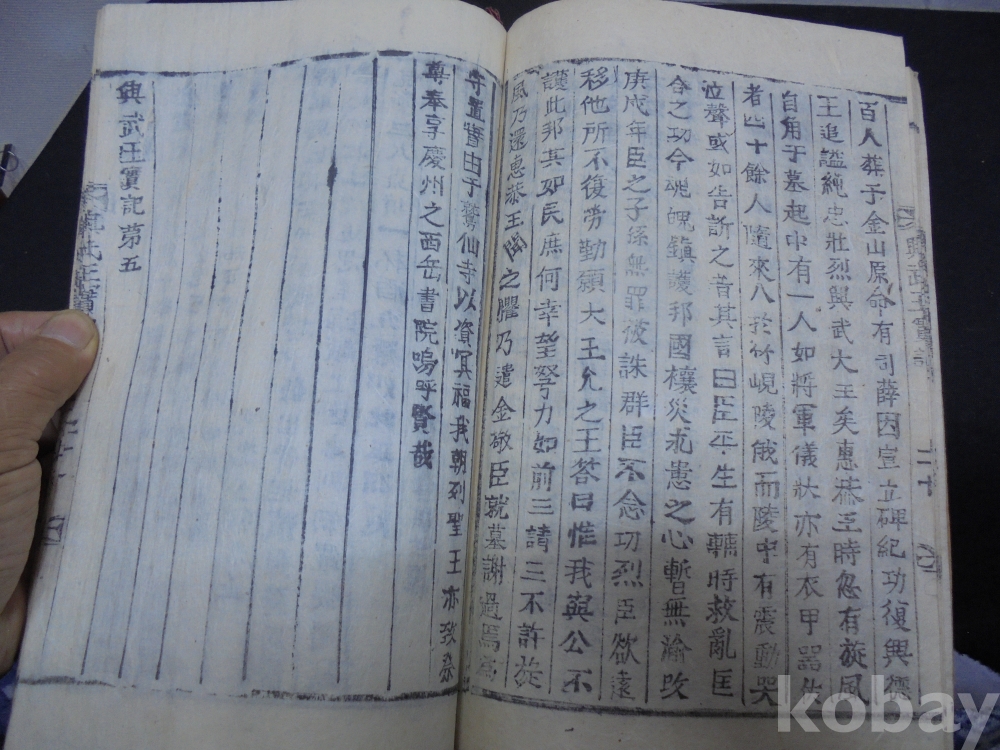 百人葬于金山原命有司薛因宣立碑紀功復興德
王追謚純忠壯烈興武大王矣惠恭王時忽有旋風
自角于墓起中有一人如將軍儀狀亦有衣甲器仗
者四十餘人隨來入於竹峴陵俄而陵中有震動哭
泣聲或如告訴之音其言曰臣平生有輔時救亂匡
合之功今魂魄鎮護邦國禳災求患之心暫無渝改
庚戌年臣之子孫無罪被誅群臣不念功烈臣欲遠
移他所不復勞勤願大王允之王答曰惟我與公不
護此邦其如民庶何幸望努力如前三請三不許旋
風乃還惠恭王聞之懼乃遣金敬臣就墓謝過焉爲
寺置
于鷲仙寺以資冥福我朝列聖王亦致祭
尊奉享慶州之西岳書院嗚呼賢哉
興武王實記第五
興武王實記
二十
kobay